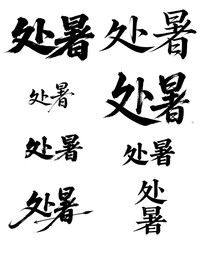 处暑 处暑
处暑 处暑
处暑 处暑
处暑 处暑